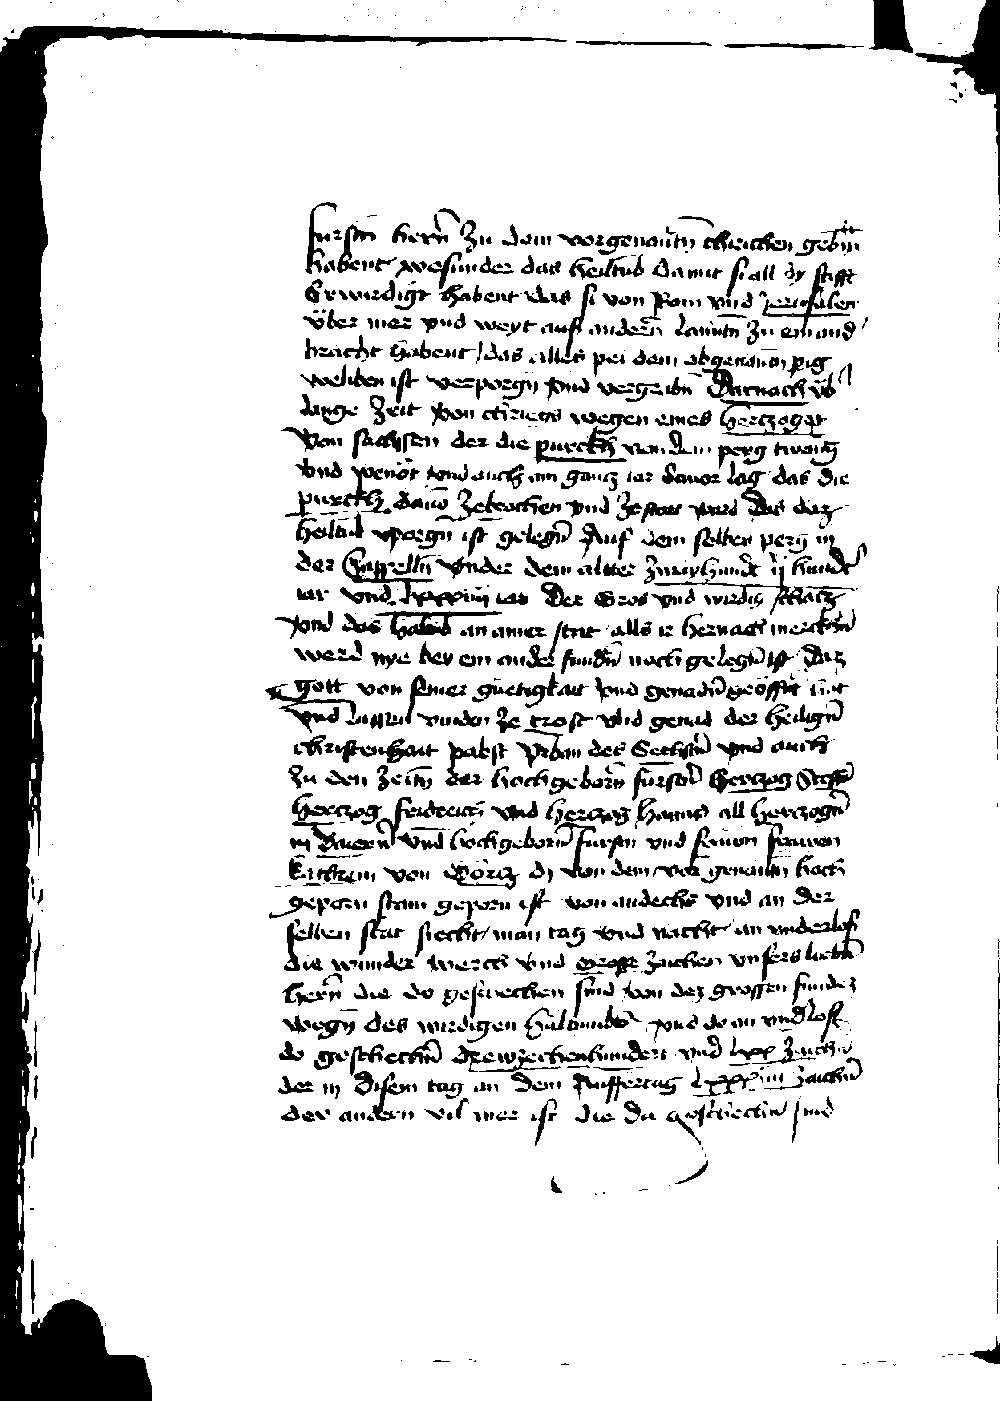 fursten hern̄ zu dem vorgenantn̄ chirchen gebn̄
habent besunder das heiltub damit si all dy stifft
Erwirdigt habent das si von Rom vnd Jerusalen
Über mer vnd weyt auß andern̄ lanntn̄ zu einand
bracht habent / das alles pei dem obgenantn̄ perg
weliben ist verporgn̄ vnd vergrabn̄ Darnach üb
lange zeit von chriegs wegen eines hertzogen
Von sachssen der die purckh von dem perg twang
vnd auch ain gantz iar dauor lag das die
purckh dauō zebrochen vnd zestort ward Das daz
heiltub vporgn̄ ist gelegn̄ Auf dem selben perg in
der Cappelln̄ vnder dem alter zwayhundt̄ hundt̄
iar vnd lxxxiiij iar Der Gros vnd wirdig schatz
vnd das haltub an ainer stat alls ir hernach merckn̄
werd nye bey ein ander fundn̄ noch gelegn̄ ist Daz
gott von seiner guetigkait vnd genadn̄ geöffnt hat
vnd lassen vinden ze trost vnd genad der heilign̄
christenhait pabst Vrban des Sechstn̄ vnd auch
zu den zeitn̄ der hochgeborn̄ furstn̄ hertzog Steffn̄
hertzog fridericn̄ vnd hertzog hanns all hertzogn̄
in Baiern̄ vnd hochgeborn̄ furstn vnd frauen
kathrein von Görtz dy von dem vor genantn̄ hoch
geporn stam geporn ist von andechs vnd an der
selben stat siecht man tag vnd nacht an vnderlas
die wunder werch vnd grosse zaichen vnsers liebn̄
hern̄ die do geschechen sind von dez grossen fundez
wegn̄ des wirdigen haltumbs vnd do an vndlost
do geschechn̄ drewzechenhundert vnd lxx zaichn̄
der in disem tag an dem Auffertag lxxxiiii zaichn̄
der andern vil mer ist die da geschechn̄ sind